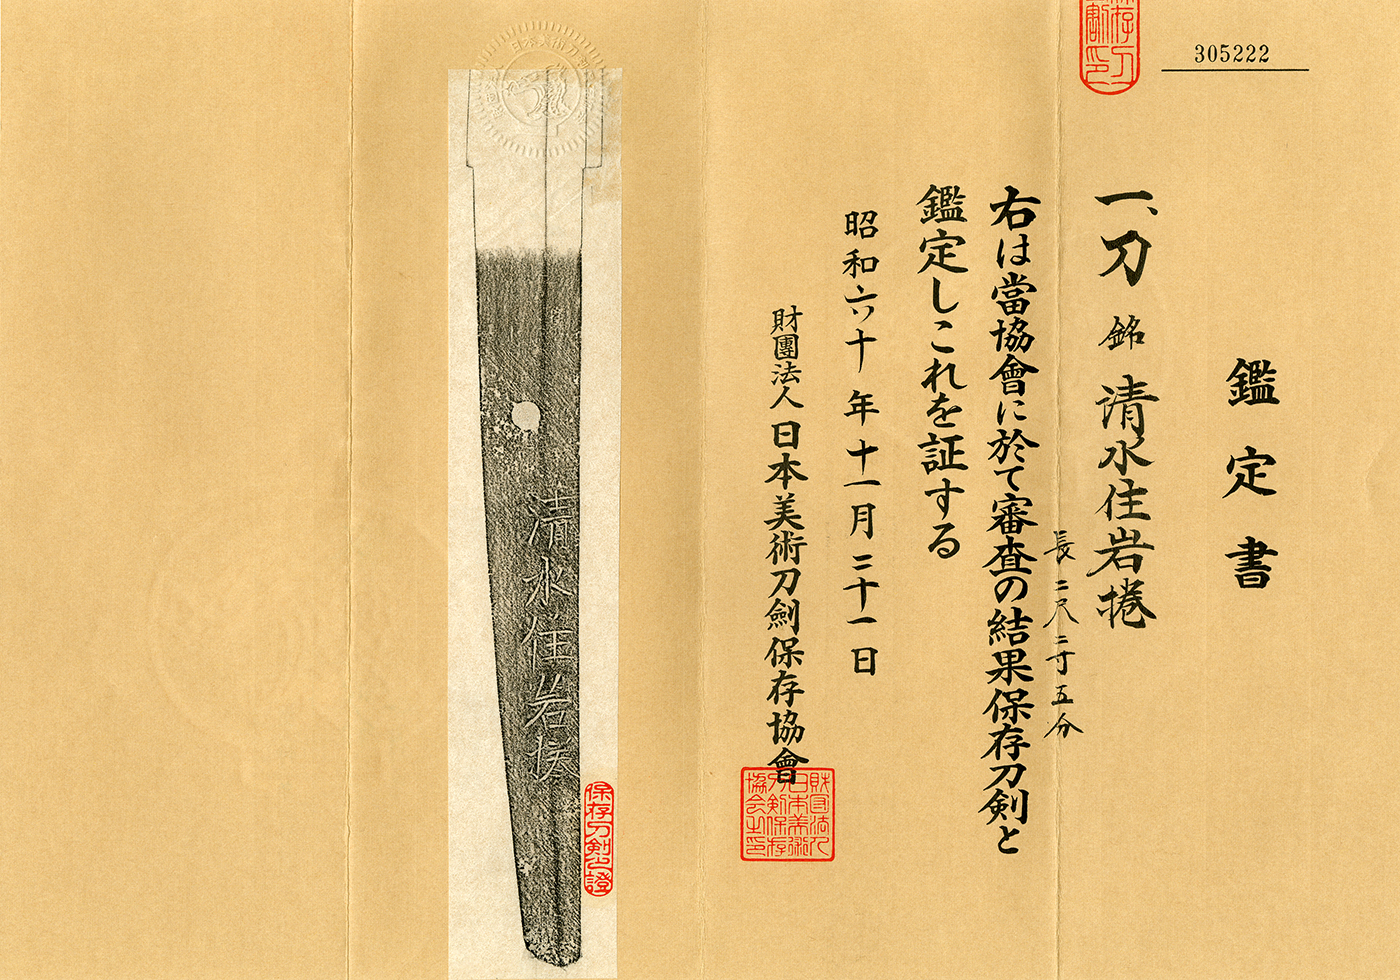 305222
鑑定書
一、刀 銘 清水住岩捲
長二尺二寸五分
右は當協會に於て審査の結果保存刀剣と
鑑定しこれを証する
昭和六十年十一月二十一日
財團法人日本美術刀劍保存協會
財団法人
日本美術
刀剣保存
協会之印
清水住岩捲
保存刀剣之證
日本美術刀剣